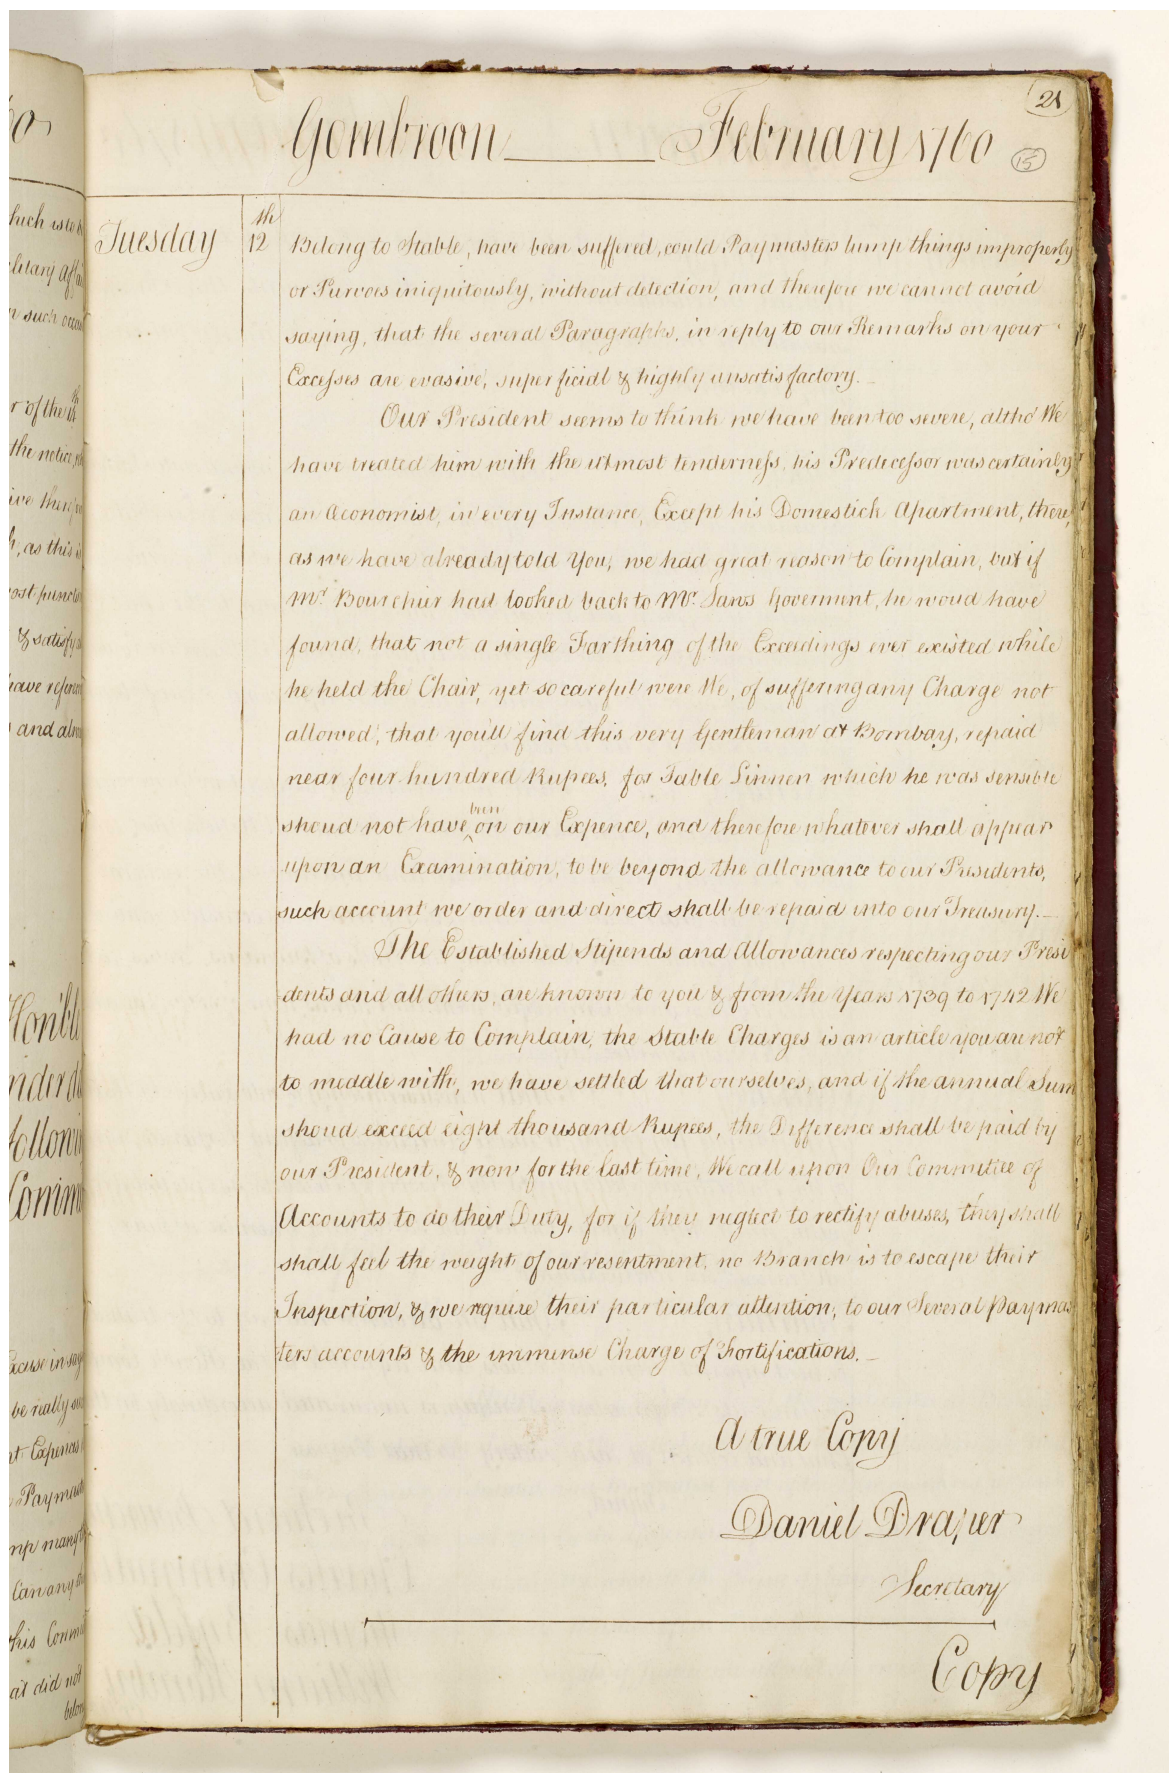 21
Gombroon February 1760
15
Tuesday 12th Belong to Stable, have been suffered, could Paymasters lump things improperly
or Purvoes iniquitously, without detection, and therefore we cannot avoid
saying, that the several Paragraphs, in reply to our Remarks on your
Excesses are evasive, superficial & highly unsatisfactory.
Our President seems to think we have been too severe, altho' We
have treated him with the utmost tenderness, his Predecessor was certainly
an Œconomist, in every Instance, Except his Domestick Apartment, there,
as we have already told You, we had great reason to Complain, but if
Mr. Bourchier had looked back to Mr. Laws Goverment, he woud have
found, that not a single Farthing of the Exceedings ever existed while
he held the Chair, yet so careful were We, of suffering any Charge not
allowed, that you'll find this very Gentleman at Bombay, repaid
near four hundred Rupees, for Table Linnen which he was sensible
shoud not have been on our Expence, and therefore whatever shall appear
upon an Examination, to be beyond the allowance to our Presidents,
such account we order and direct shall be repaid into our Treasury.
The Established Stipends and Allowances respecting our Presi
dents and all others, are known to you & from the Years 1739 to 1742 We
had no Cause to Complain, the Stable Charges is an article you are not
to meddle with, we have settled that ourselves, and if the annual Sum
shoud exceed eight thousand Rupees, the Difference shall be paid by
our President, & now for the last time, We call upon Our Committee of
Accounts to do their Duty, for if they neglect to rectify abuses, they shall
shall feel the weight of our resentment, no Branch is to escape their
Inspection, & we require their particular attention, to our Several Paymas
ters accounts & the immense Charge of Fortifications.
A true Copy
Daniel Draper
Secretary
Copy